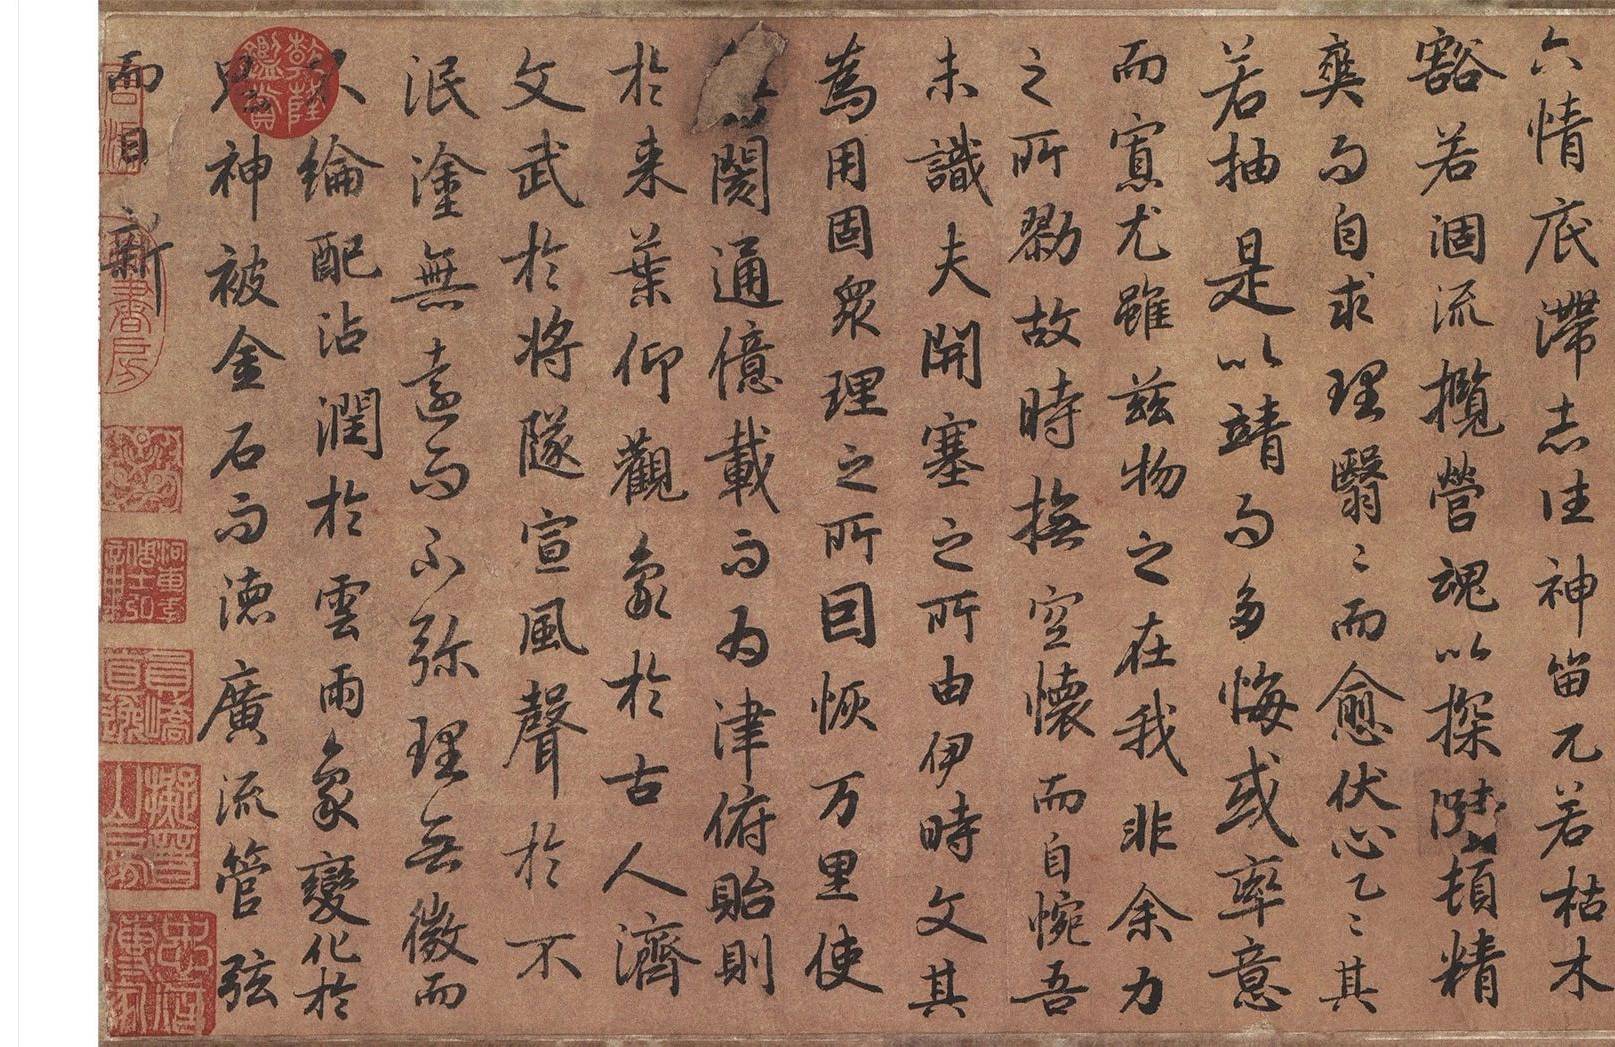 六情底滯志往神留兀若枯木
豁若涸流攬營魂以探賾頓精
爽而自求理翳〻而愈伏心乙〻其
若抽是以靖而多悔或率意
而寡尤雖茲物之在我非余力
之所勠故時撫空懷而自惋吾
未識夫開塞之所由伊時文其
為用固眾理之所因恢万里使
閡通億載而為津俯貽則
於来葉仰觀象於古人濟
文武於將隧宣風聲於不
泯塗無遠而不弥理無微而
綸配沾潤於雲雨象變化於
鬼神被金石而德廣流管弦
而日新
乾隆鑑賞